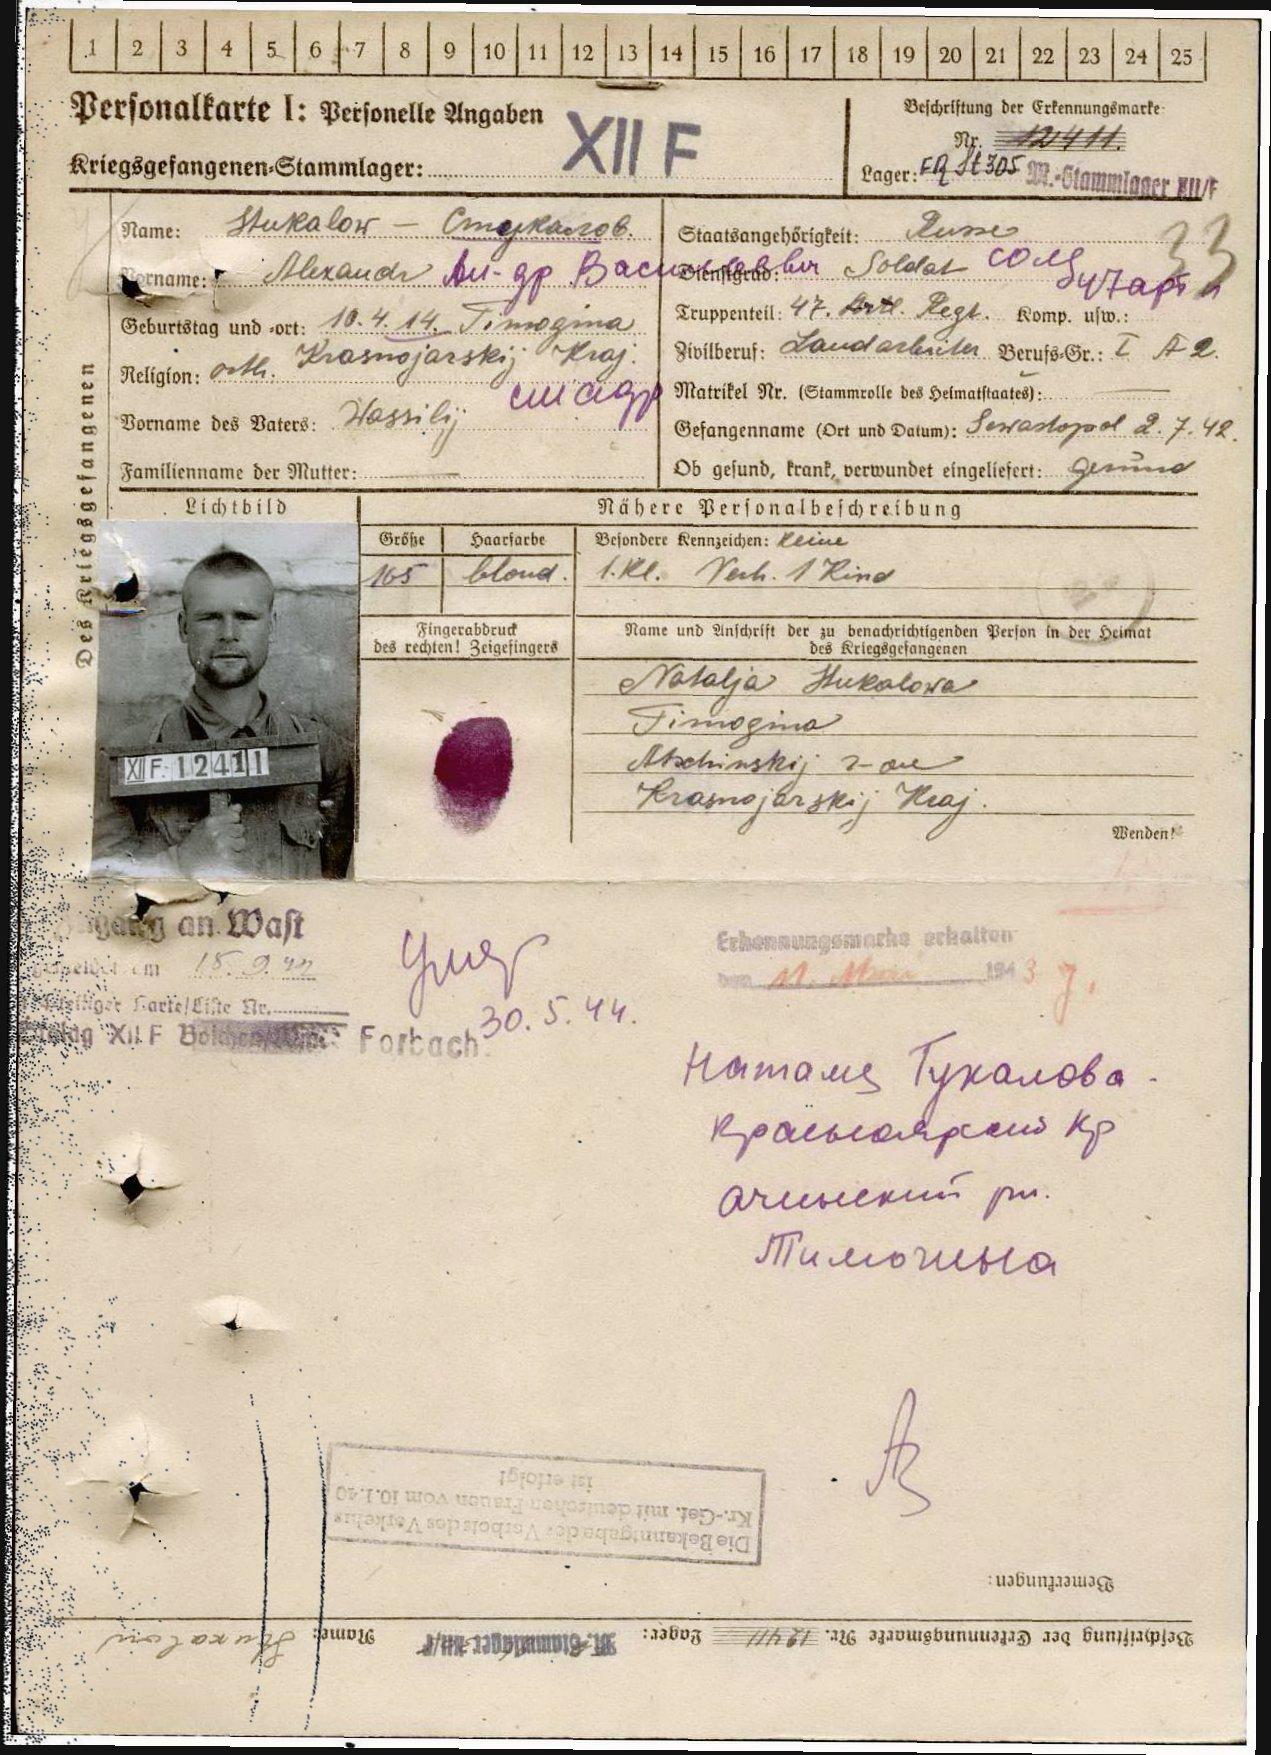 1 2 3 4 5 6 7 8 9 10 11 12 13 14 15 16 17 18 19 20 21 22 23 24 25
Personalkarte I: Personelle Angaben
Kriegsgefangenen-Stammlager: XII F
Beschriftung der Erkennungsmarke
Nr. 12411.
Lager: St 305 M.-Stammlager XII/F
Des Kriegsgefangenen
Name: Stukalow – Стукалов.
Vorname: Alexandr Ал-др
Geburtstag und -ort: 10.4.14. Timogina
Krasnojarskij Kraj.
Religion: orth.
Vorname des Vaters: Wassilij
Familienname der Mutter: —
Staatsangehörigkeit: Russe
33
Dienstgrad: Soldat
Truppenteil: 47. Artl. Regt. Komp. usw.:
Zivilberuf: Landarbeiter Berufs-Gr.: I A 2.
Matrikel Nr. (Stammrolle des Heimatstaates): —
Gefangenname (Ort und Datum): Sewastopol 2.7.42.
Ob gesund, krank, verwundet eingeliefert: gesund
Lichtbild
Nähere Personalbeschreibung
Größe
Haarfarbe
Besondere Kennzeichen: keine
165
blond.
1. Kl. Verh. 1 Kind
Fingerabdruck
des rechten! Zeigefingers
Name und Anschrift der zu benachrichtigenden Person in der Heimat
des Kriegsgefangenen
Natalja Stukalowa
Timogina
Atschinskij r-on
Krasnojarskij Kraj.
Wenden!
XII F. 12411
an Wast
Karte/Liste Nr.
XII F Forbach
Умер
30.5.44.
Erkennungsmarke erhalten
11. 1943
Тукалова
Красноярский кр
ачинский рн.
Тимочина
Die Bekanntgabe des Verbots des Verkehrs
Kr.-Gef. mit deutschen Frauen vom 10.1.40
ist erfolgt
Bemerkungen:
Beschriftung der Erkennungsmarke Nr. 12411 Lager: M.-Stammlager XII/F Name: Stukalow